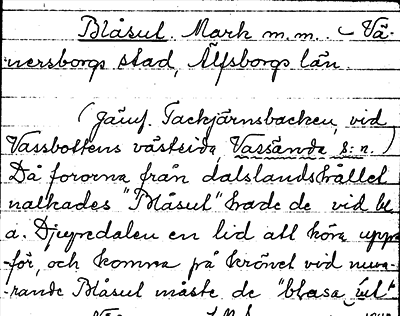 Blåsut. Mark m.m. Vä-
nersborgs stad, Älfsborgs län.
(Jämf. Tackjärnsbacken, vid
Vassbottens västsida, Vassända s:n.)
Då fororna från dalslandshållet
nalkades "Blåsut" hade de vid bl.
a. Djupedalen en lid att köra upp-
för, och komna på krönet vid nuva-
rande Blåsut måste de "blåsa ut"